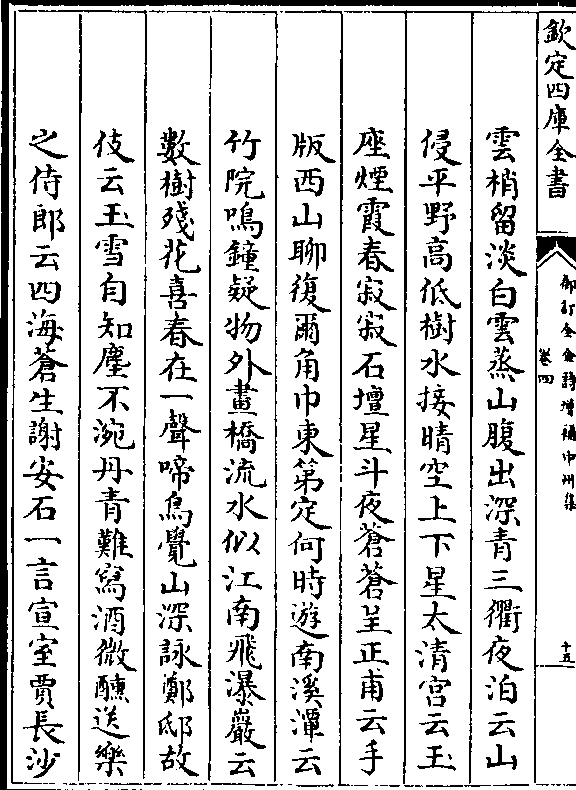 欽定四庫全書
御訂全金詩增補中州集
卷四
十五
雲梢留淡白雲蒸山腹出深青三衢夜泊云山
侵平野高低樹水接晴空上下星太清宮云玉
座煙霞春寂寂石壇星斗夜蒼蒼呈正甫云手
版西山聊復爾角巾東第定何時遊南溪潭云
竹院鳴鐘疑物外畫橋流水似江南飛瀑巖云
數樹殘花喜春在一聲啼鳥覺山深詠鄭邸故
伎云玉雪自知塵不涴丹青難寫酒微醺送樂
之侍郎云四海蒼生謝安石一言宣室賈長沙